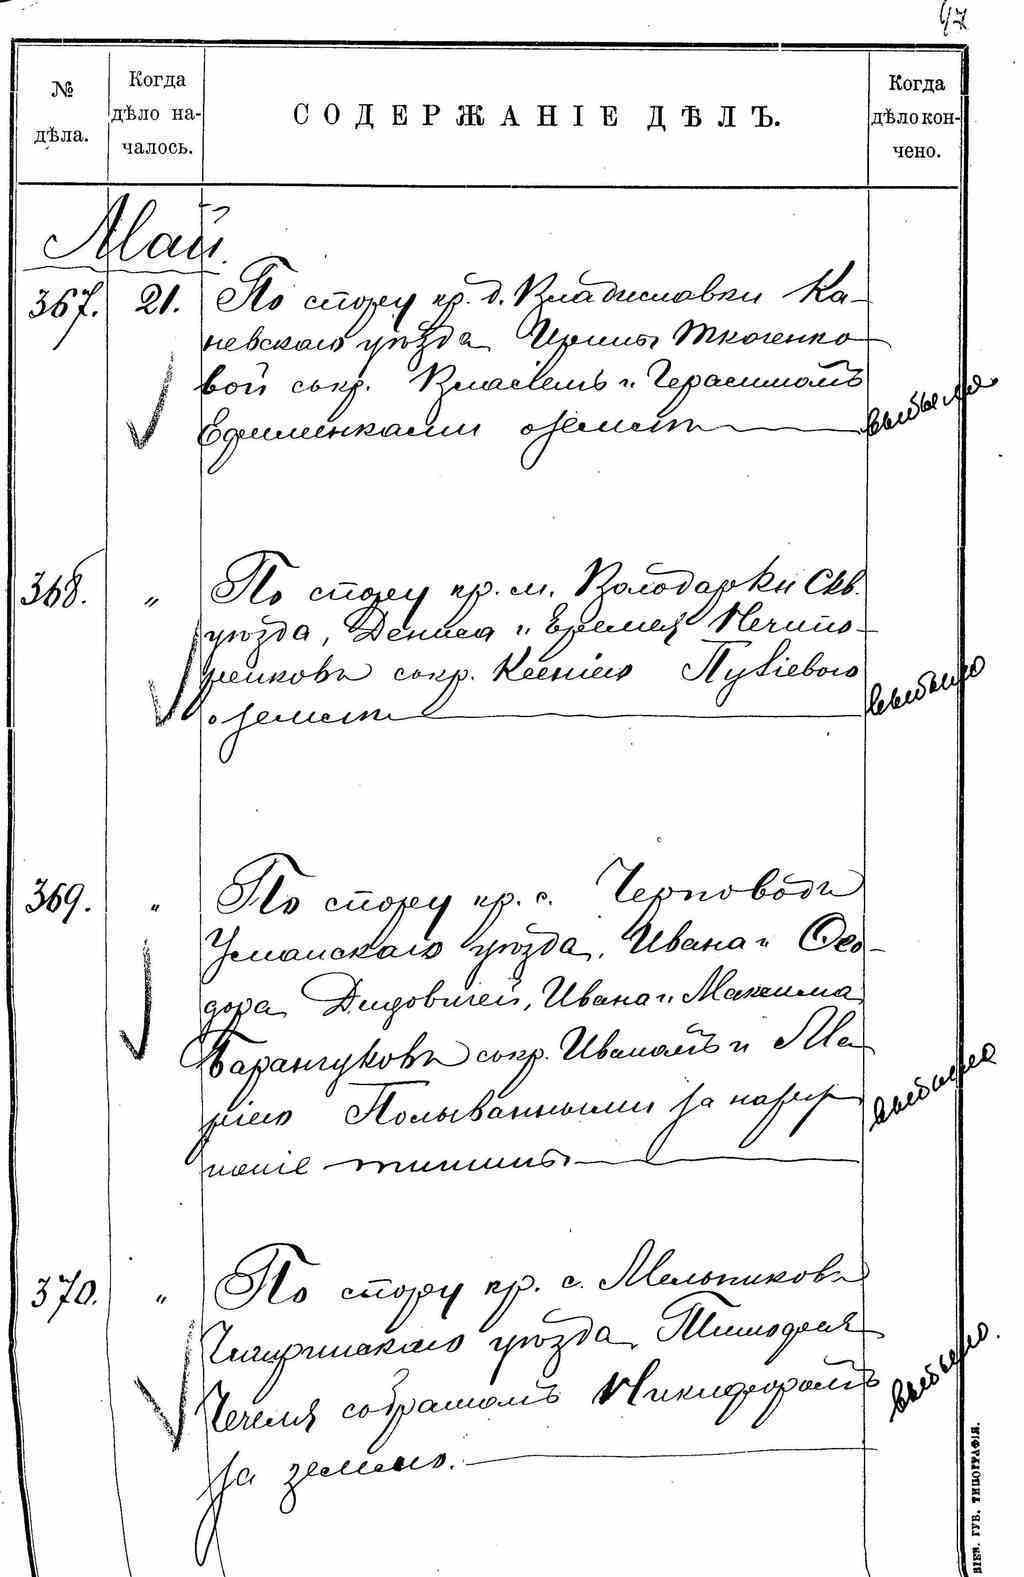 47
№ дѣла.
Когда дѣло на-
чалось.
СОДЕРЖАНІЕ ДѢЛЪ.
Когда дѣло кон-
чено.
Май.
367. 21. По спору кр. д. Владиславки Ка-
невскаго уѣзда Ирины Ткаченко-
вой съ кр. Власіемъ и Герасимомъ
Ефименками о землѣ выбыло
368. " По спору кр. м. Володарки Скв.
уѣзда, Дениса и Еремея Нечипо-
ренковъ съ кр. Ксеніею
о землѣ выбыло
369. " По спору кр. с. Черповоды
Уманскаго уѣзда, Ивана и Ѳео-
дора Ивана и Максима
Баранчуковъ съ кр. Иваномъ и Ма-
ріею Полыванными за наруш
шеніе тишины выбыло
370. " По спору кр. с. Мельниковъ
Чигиринскаго уѣзда Тимофея
Чечеля съ братомъ Никифоромъ
за землю. выбыло.
КІЕВ. ГУБ. ТИПОГРАФІЯ.